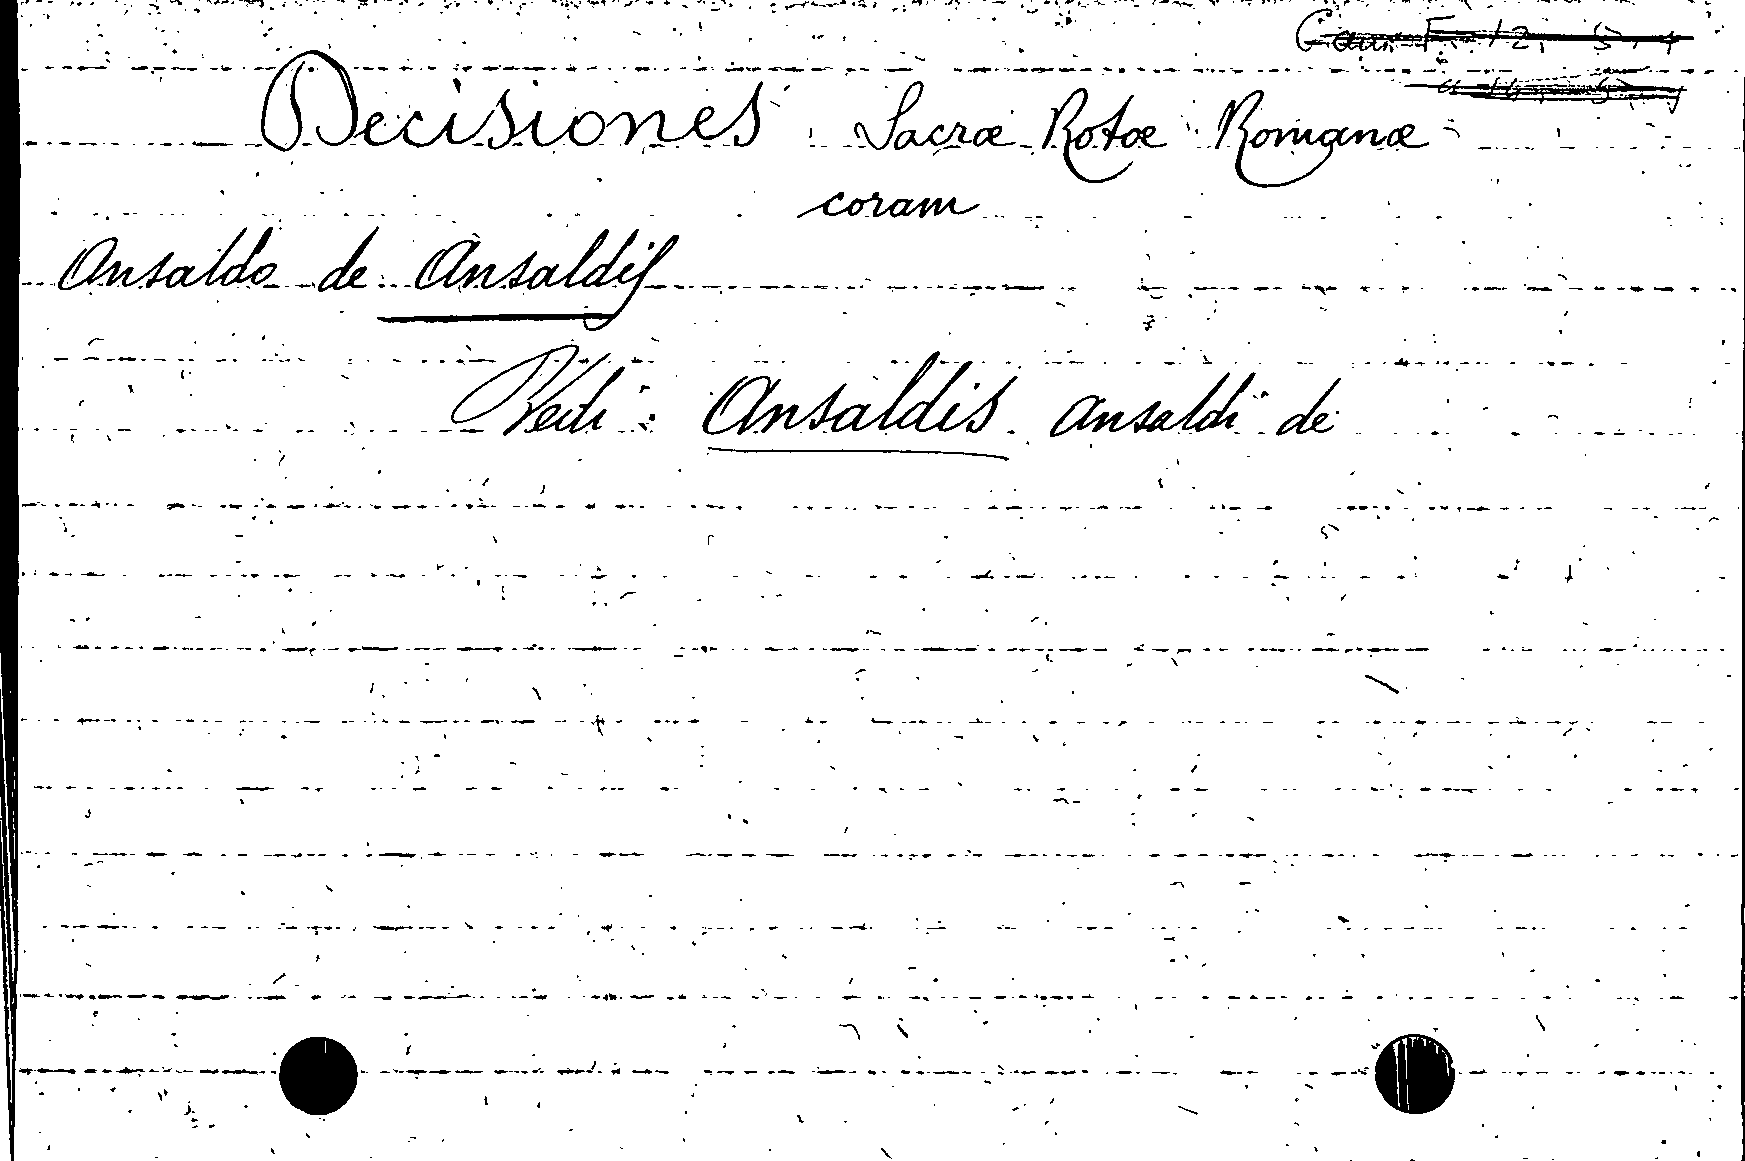 Decisiones Sacræ Rotæ Romanæ
coram
Ansaldo de Ansaldis
Vedi: Ansaldis Ansaldi de